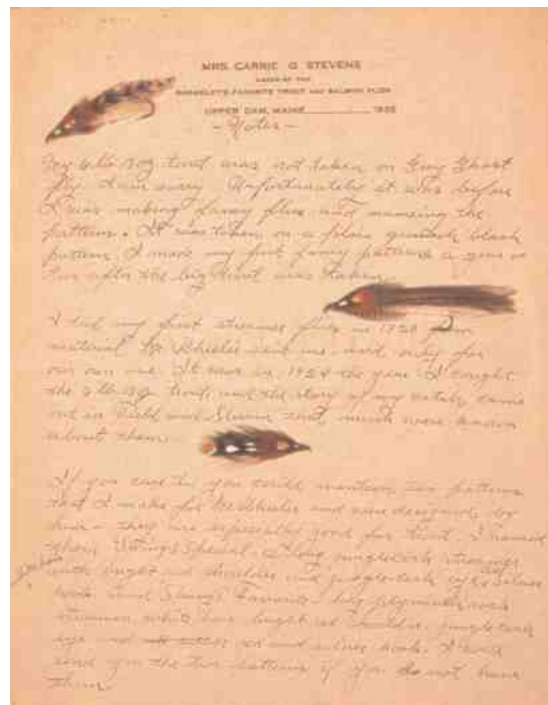 MRS. CARRIE G. STEVENS
MAKER OF THE
RANGELEY'S FAVORITE TROUT AND SALMON FLIES
UPPER DAM, MAINE 193
- Notes -
My 6 lb 13 oz trout was not taken on Grey Ghost
fly. I am sorry. Unfortunately it was before
I was making fancy flies and naming the
pattern. It was taken on a plain
pattern. I made my first fancy patterns a year or
two after the big trout was taken.
I tied my first streamer flies in from
material Mr. Wheeler sent me and only for
our own use. It was in 1924 the year I caught
the 6 lb 13 oz trout, and the story of my catch came
out in Field and Stream that much were known
about them.
If you care to, you could mention two patterns
that I make for Mr. Wheeler and were designed by
him - they are especially good for trout. I named
them Special - long jungle cock
with bright red shoulders and jungle cock eye & silver
body and Favorite - long plymouth rock
streamer, white, bright red shoulders, jungle cock
eye and red and silver body. I will
send you the two patterns if you do not have
them.